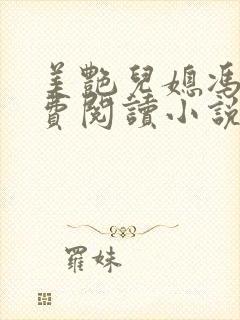 美艷兒媳馮
費閱讀小說
羅妹